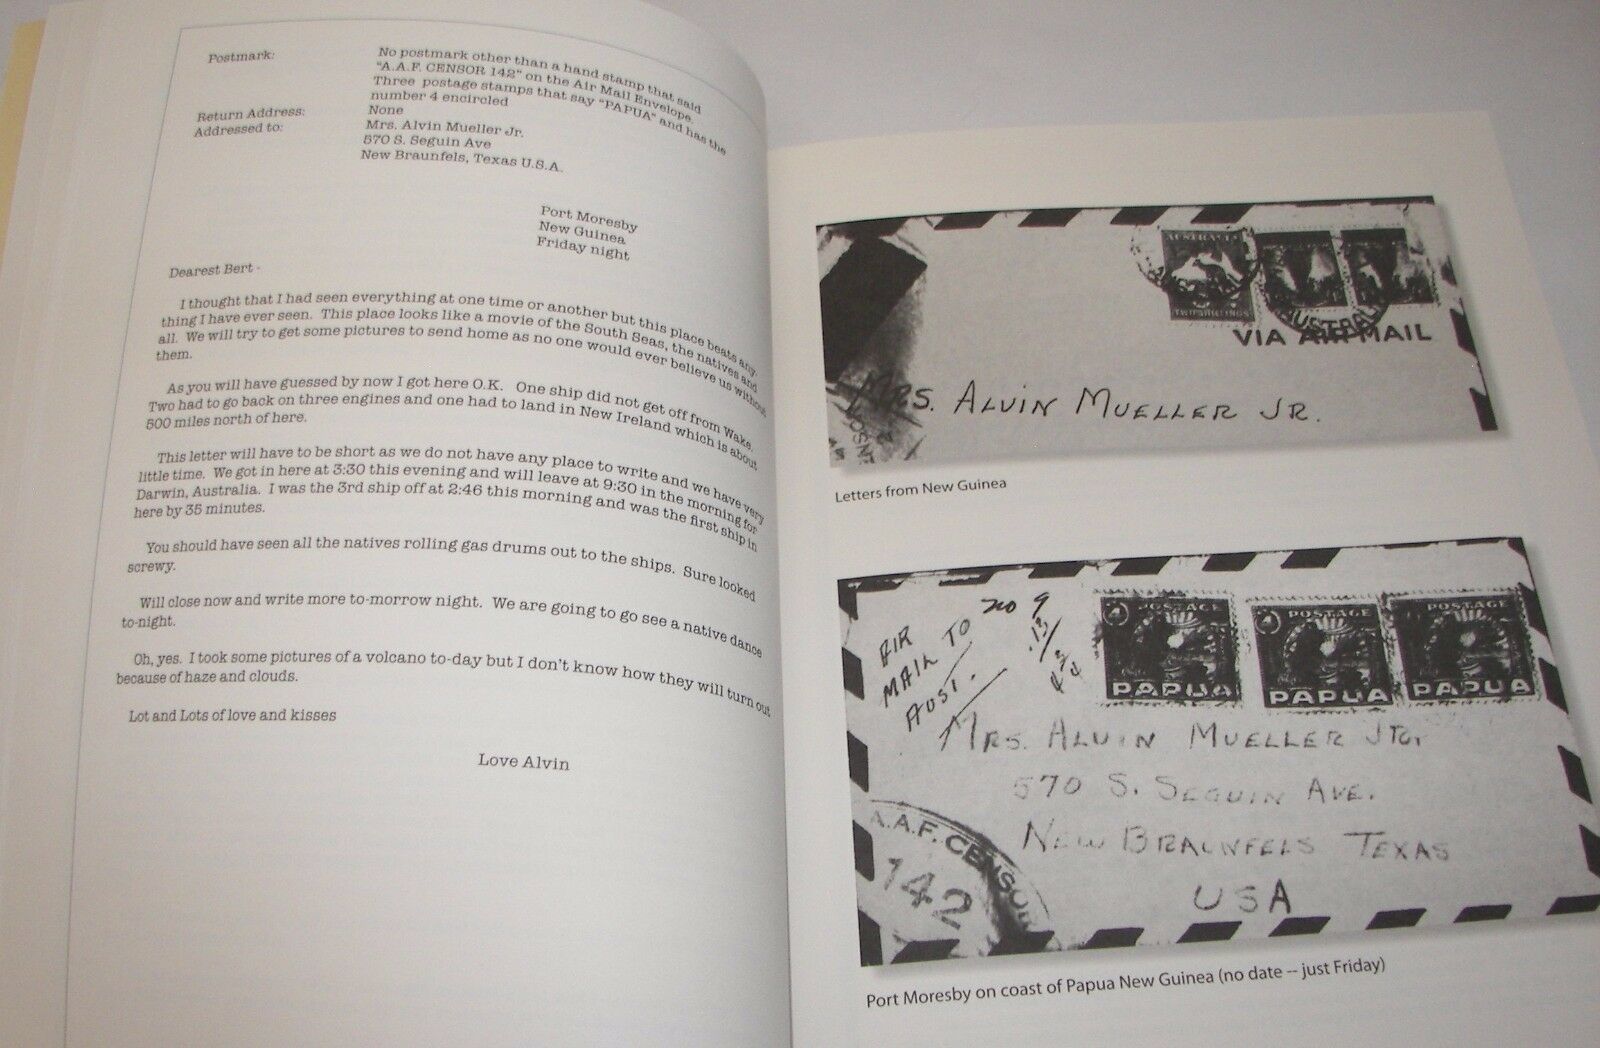 Postmark: No postmark other than a hand stamp that said
"A.A.F. CENSOR 142" on the Air Mail Envelope.
Three postage stamps that say "PAPUA" and has the
number 4 encircled
Return Address: None
Addressed to: Mrs. Alvin Mueller Jr.
570 S. Seguin Ave
New Braunfels, Texas U.S.A.
Port Moresby
New Guinea
Friday night
Dearest Bert -
I thought that I had seen everything at one time or another but this place beats any-
thing I have ever seen. This place looks like a movie of the South Seas, the natives and
all. We will try to get some pictures to send home as no one would ever believe us without
them.
As you will have guessed by now I got here O.K. One ship did not get off from Wake.
Two had to go back on three engines and one had to land in New Ireland which is about
500 miles north of here.
This letter will have to be short as we do not have any place to write and we have very
little time. We got in here at 3:30 this evening and will leave at 9:30 in the morning for
Darwin, Australia. I was the 3rd ship off at 2:46 this morning and was the first ship in
here by 35 minutes.
You should have seen all the natives rolling gas drums out to the ships. Sure looked
screwy.
Will close now and write more to-morrow night. We are going to go see a native dance
to-night.
Oh, yes. I took some pictures of a volcano to-day but I don't know how they will turn out
because of haze and clouds.
Lot and Lots of love and kisses
Love Alvin
AUSTRALIA
TWO SHILLINGS
AUSTRALIA
VIA AIR MAIL
MRS. ALVIN MUELLER JR.
Letters from New Guinea
AIR
MAIL TO
AUST.
no 9
.13
4 POSTAGE PAPUA
4 POSTAGE PAPUA
POSTAGE PAPUA
MRS. ALVIN MUELLER JR.
570 S. SEGUIN AVE.
NEW BRAUNFELS TEXAS
USA
A.A.F. CENSOR
142
Port Moresby on coast of Papua New Guinea (no date -- just Friday)